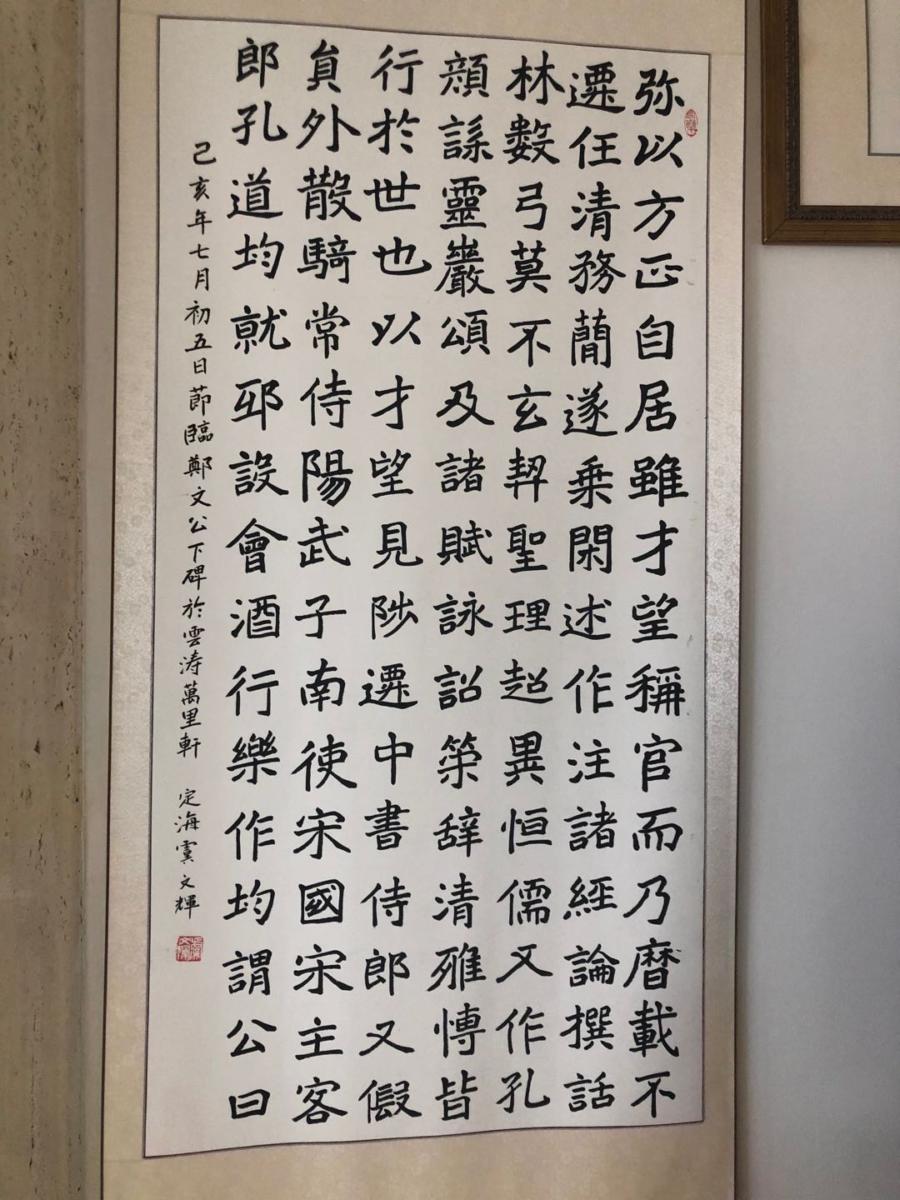 弥以方正自居雖才望稱官而乃曆載不
遷任清務簡遂乗閑述作注諸經論撰話
林數弓莫不玄契聖理超異恒儒又作孔
顔誄靈巖頌及諸賦詠詔策辞清雅博皆
行於世也以才望見陟遷中書侍郎又假
員外散騎常侍陽武子南使宋國宋主客
郎孔道均就邸設會酒行樂作均謂公曰
己亥年七月初五日節臨鄭文公下碑於雲涛萬里軒 定海虞文輝